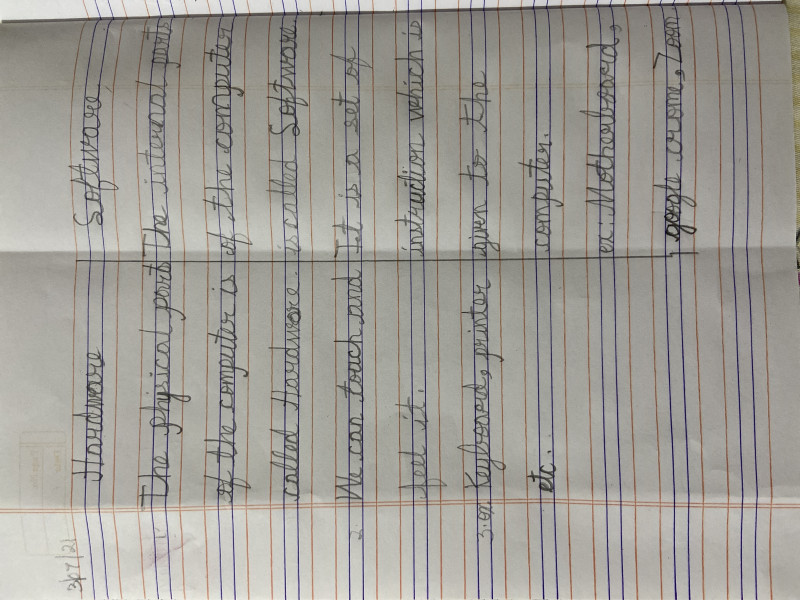 3/07/21
Hardware Software
1. The physical part The internal parts
of the computer is of the computer
called Hardware. is called Software
2. We can touch and It is a set of
feel it. instruction which is
3. ex. Keyboard, printer given to the
etc.. computer.
ex: Motherboard,
google crome, Zoom